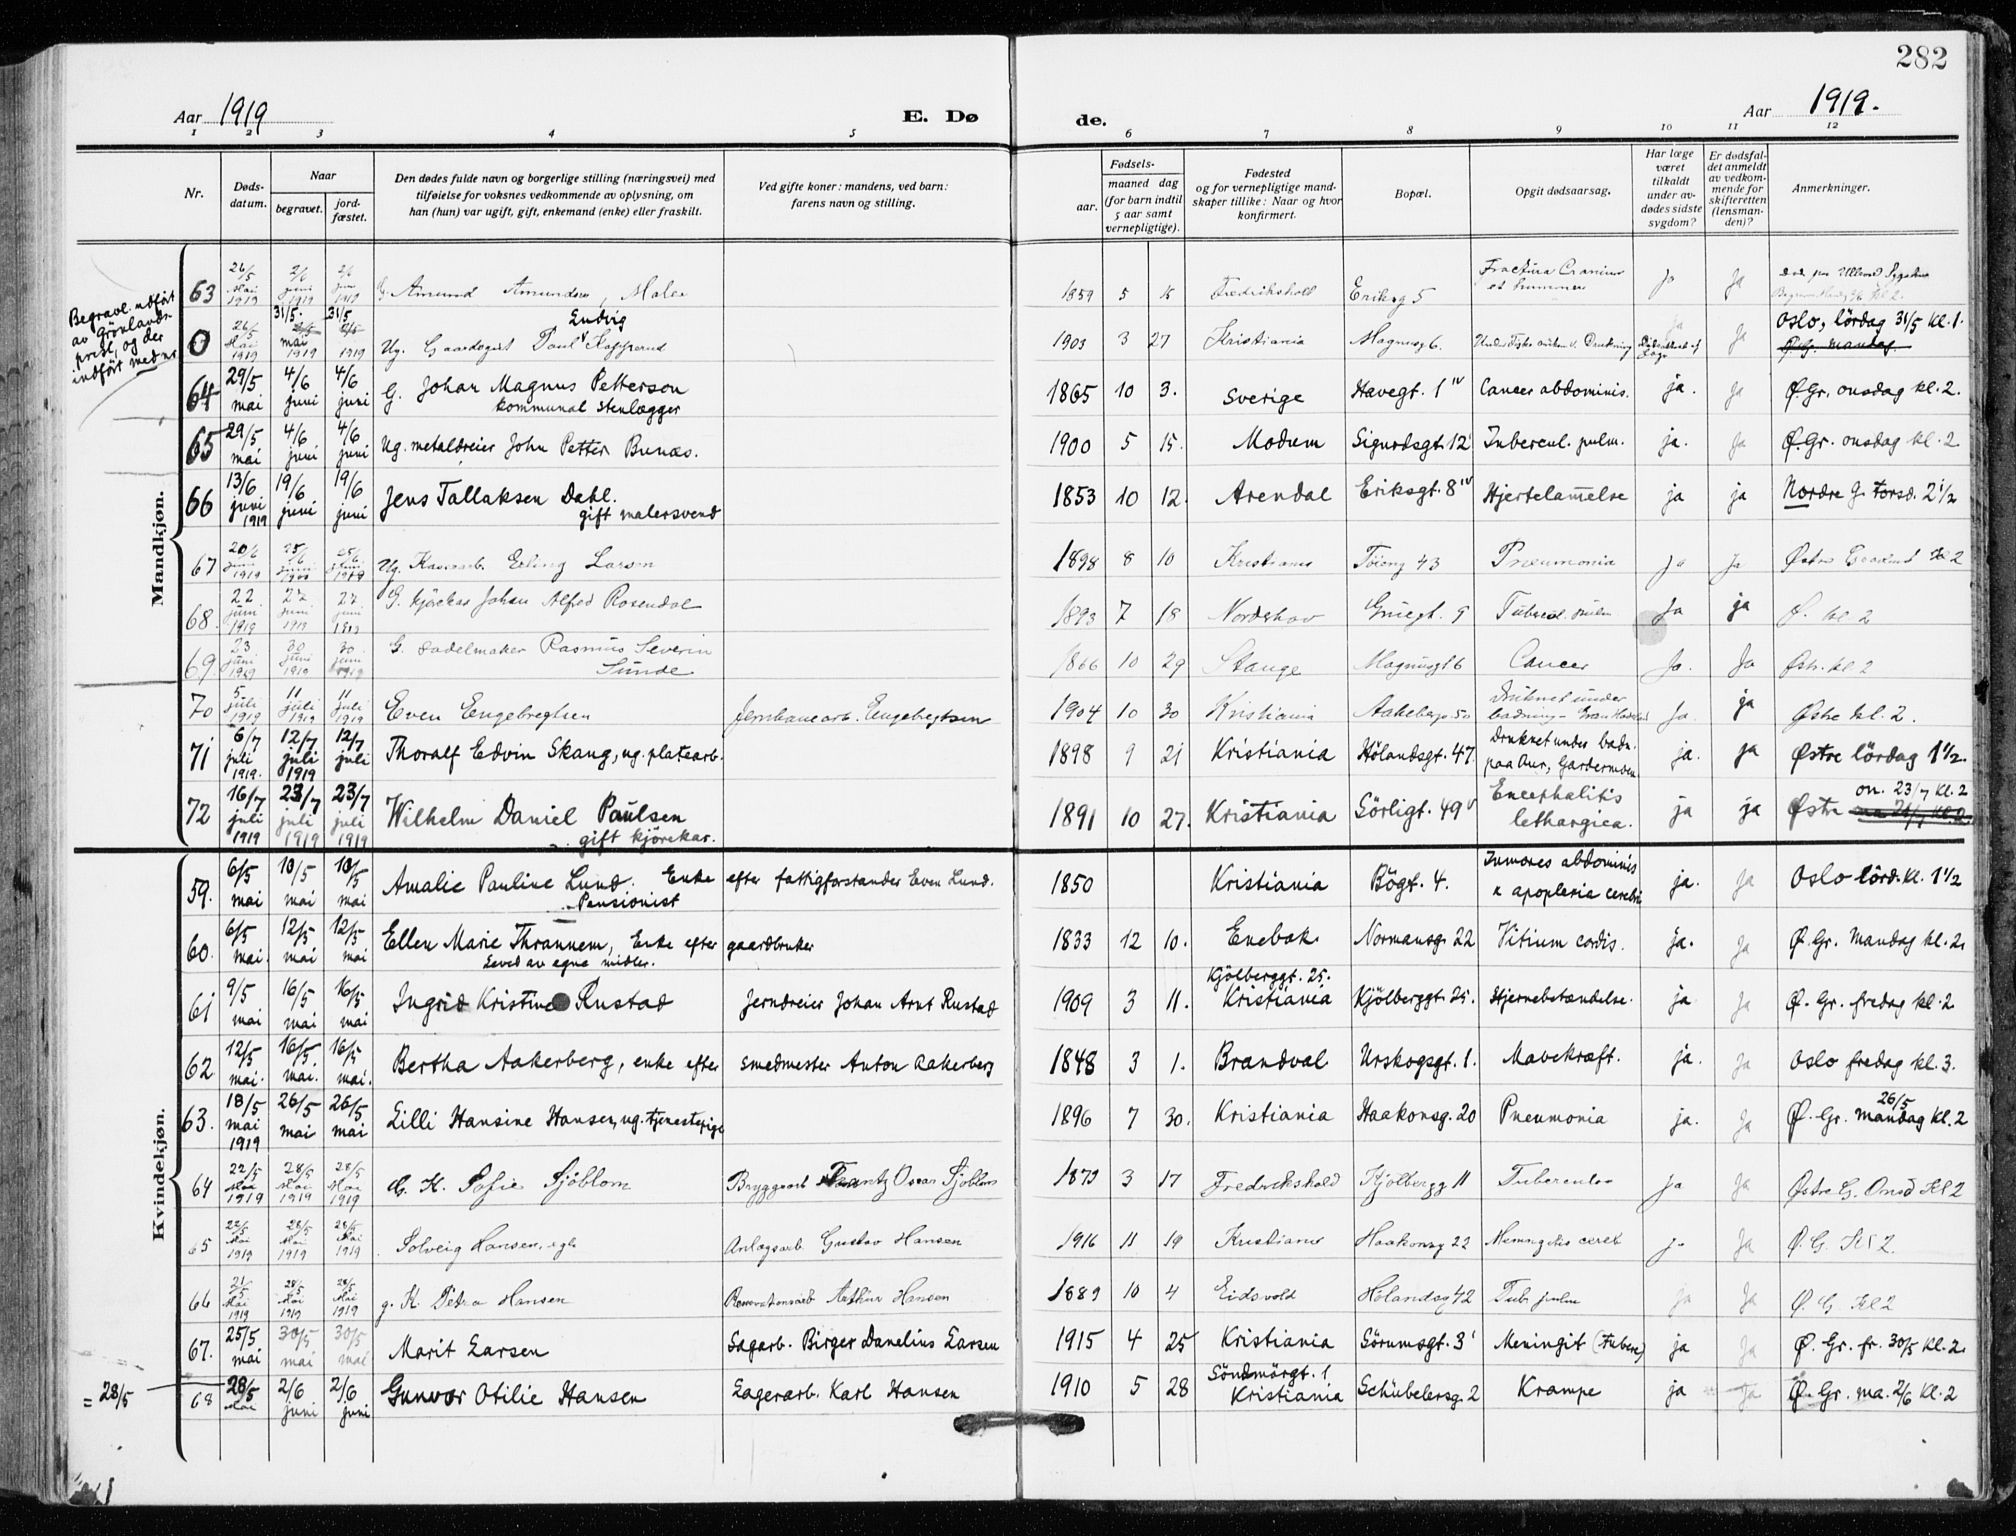 282
Aar 1919 E. Dø de. Aar 1919.
1 2 3 4 5 6 7 8 9 10 11 12
Nr. Døds-datum. Naar begravet. jord-fæstet. Den dødes fulde navn og borgerlige stilling (næringsvei) med tilføielse for voksnes vedkommende av oplysning, om han (hun) var ugift, gift, enkemand (enke) eller fraskilt. Ved gifte koner: mandens, ved barn: farens navn og stilling. Fødsels- aar. maaned dag (for barn indtil 5 aar samt vernepligtige). Fødested og for vernepligtige mand-skaper tillike: Naar og hvor konfirmert. Bopæl. Opgit dødsaarsag. Har læge været tilkaldt under av-dødes sidste sygdom? Er dødsfal-det anmeldt av vedkom-mende for skifteretten (lensman-den)? Anmerkninger.
Begravl. utført
av Grönlands
prest, og der
indført med nr
Mandkjøn.
63 26/5 Mai 1919 2/6 juni 1919 2/6 juni 1919 G. Amund Amundsen, Maler 1859 5 15 Fredrikshald Eriksg 5 Fractura Cranium et humeri Ja Ja
0 26/5 Mai 1919 31/5. mai 1919 31/5 1919 Ug. Gaardsgut Paul Endvig Kopperud 1903 3 27 Kristiania Magnusg 6. Ja Oslo, lördag 31/5 kl. 1. Ø.G. mandag.
64 29/5 mai 4/6 juni 4/6 juni G. Johan Magnus Petterson kommunal stenlægger 1865 10 3. Sverige Havegt. 1 IV Cancer abdominis. ja. ja Ø.Gr. onsdag kl. 2.
65 29/5 mai 4/6 juni 4/6 juni Ug. metaldreier John Petter Bunæs. 1900 5 15. Modum Sigurdsgt. 12 Tubercul. pulm. ja. ja Ø.Gr. onsdag kl. 2
66 13/6 juni 1919 19/6 juni 19/6 juni Jens Tallaksen Dahl. gift malersvend 1853 10 12. Arendal Eriksgt. 8 IV Hjertelam̅else ja ja Nordre G. Torsd. 2 1/2
67 20/6 juni 1919 25/6 juni 1919 25/6 juni 1919 Ug. Erling Larsen 1898 8 10 Kristiania Töieng 43 Pneumonia Ja Ja Østre Gravlund kl 2
68. 22 juni 1919 27 juni 1919 27 juni 1919 G. kjörekar Johan Alfred Rosendal 1893 7 18 Nordskov Gruegt. 9 Tubercul. pulm Ja ja Ø. kl 2
69. 23 juni 1919 30 juni 1919 30. juni 1919 G. Sadelmaker Rasmus Severin Sunde 1866 10 29 Stange Magnusgt 6 Cancer Ja. Ja Østr. kl 2
70 5 juli 1919 11 juli 1919 11 juli 1919 Even Engebregtsen Jernbanearb. Engebregtsen 1904 10 30 Kristiania Aakebergv. 50 Druknet under badning Ja. ja Østre kl. 2.
71 6/7 juli 1919. 12/7 juli 1919 12/7 juli Thoralf Edvin Skaug, ug. platearb. 1898 9 21 Kristiania Hölandsgt. 47. Druknet under badn. paa Aur, Gardermoen ja. ja Østre lördag 1 1/2.
72 16/7 juli 1919 23/7 juli 1919 23/7 juli 1919 Wilhelm Daniel Paulsen gift kjörekar. 1891 10 27. Kristiania Sörligt. 49 V Encephalitis lethargica. ja ja Østre ma 21/7 kl. 2 on. 23/7 kl. 2
Kvindekjøn.
59. 6/5 mai 10/5 mai 10/5 mai Amalie Pauline Lund. Enke Pensionist efter fattigforstander Even Lund. 1850 Kristiania Bögt. 4. Tumores abdominis & apoplexia cerebri ja. ja Oslo lörd. kl. 1 1/2
60. 6/5 mai. 12/5 mai 12/5 mai Ellen Marie Thrannem, Enke efter Leved av egne midler. gaardbruker 1833 12 10. Enebak Normansg. 22 Vitium cordis. ja. ja Ø. Gr. Mandag kl. 2.
61 9/5 mai 16/5 mai 16/5 mai Ingrid Kristine Rustad Jerndreier Johan Arnt Rustad 1909 3 11. Kjölberggt. 25. Kristiania Kjölberggt. 25. Hjernebetændelse. ja ja Ø. Gr. fredag kl. 2
62 12/5 mai. 16/5 mai. 16/5 mai. Bertha Aakerberg, enke efter smedmester Anton Aakerberg 1848 3 1. Brandval Urskogsgt. 1. Mavekræft. ja. ja Oslo fredag kl. 3.
63. 18/5 mai 1919 26/5 mai 26/5 mai Lilli Hansine Hansen, ug. tjenestepige 1896 7 30. Kristiania Haakonsg. 20 Pneumonia ja. ja Ø. Gr. mandag 26/5 kl. 2
64 22/5 Mai 1919 28/5 Mai 1919 28/5 Mai 1919 G. K. Sofie Sjöblom Bryggearb Frantz Oscar Sjöblom 1873 3 17 Fredrikshald Kjölbergg 11 Tuberculose ja Ja Østre G. Onsd Kl 2
65 22/5 Mai 1919 28/5 Mai 1919 28/5 Mai 1919 Solveig Hansen, egte Anlægsarb. Gustav Hansen 1916 11 19 Kristiania Haakonsg 22 Meningitis cereb ja Ja Ø. G. Kl 2.
66 21/5 Mai 1919 28/5 Mai 1919 28/5 Mai 1919 g. K. Petra Hansen Renovationsarb Arthur Hansen 1889 10 4 Eidsvold Hölandsg 42 Tub. pulm ja Ja Ø. G. Kl 2
67. 25/5 mai 30/5 mai 30/5 mai Marit Larsen Sagarb. Birger Danelius Larsen 1915 4 25 Kristiania Sörumsgt. 3 Meningit (Tuberc) ja Ja Ø. Gr. fr. 30/5 kl. 2.
= 28/5 68 28/5 Mai 2/6 juni 2/6 juni Gunvor Otilie Hansen Lagerarb. Karl Hansen 1910 5 28 Söndmörgt. 1 Kristiania Schübelersg. 2 Krampe ja Ja Ø. Gr. ma. 2/6 kl. 2